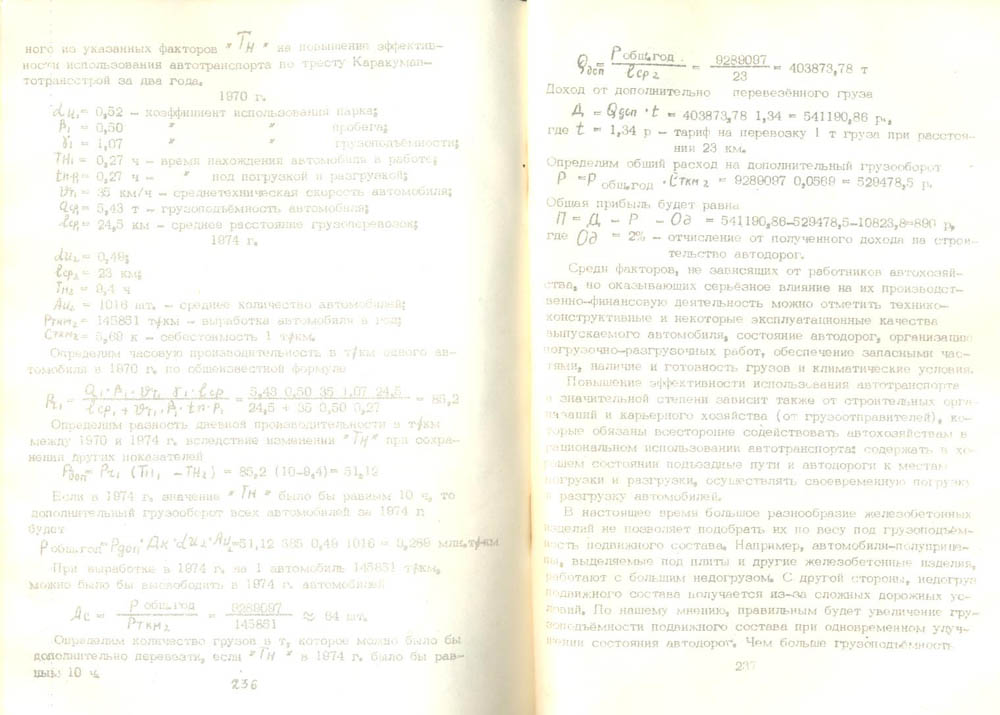 ного из указанных факторов "Тн" на повышение эффектив-
ности использования автотранспорта по тресту Каракумав-
тотрансстрой за два года.
1970 г.
αи₁= 0,52 – коэффициент использования парка;
β₁ = 0,50 " " пробега;
γ₁ = 1,07 " " грузоподъёмности;
Тн₁= 0,27 ч – время нахождения автомобиля в работе;
tп-р= 0,27 ч – " под погрузкой и разгрузкой;
Vт₁= 35 км/ч – среднетехническая скорость автомобиля;
Qср₁= 5,43 т – грузоподъёмность автомобиля;
ℓср₁= 24,5 км – среднее расстояние грузоперевозок;
1974 г.
αи₂= 0,49;
ℓср₂= 23 км;
Тн₂= 9,4 ч
Аи₂ = 1016 шт. – среднее количество автомобилей;
Рткм₂= 145851 т/км – выработка автомобиля в год;
Сткм₂= 5,69 к – себестоимость 1 т/км.
Определим часовую производительность в т/км одного ав-
томобиля в 1970 г. по общеизвестной формуле
Рч₁ = Q₁·β₁·Vт₁ γ₁·ℓср / ℓср₁ + Vт₁·β₁·tп-р₁ = 5,43 0,50 35 1,07 24,5 / 24,5 + 35 0,50 0,27 = 85,2
Определим разность дневной производительности в т/км
между 1970 и 1974 г. вследствие изменения "Тн" при сохра-
нении других показателей
Рдоп= Рч₁ (Тн₁ –Тн₂) = 85,2 (10–9,4)= 51,12
Если в 1974 г. значение "Тн" было бы равным 10 ч, то
дополнительный грузооборот всех автомобилей за 1974 г.
будет
Робщ.год=Рдоп·Дк·αи₂·Аи₂=51,12 365 0,49 1016 = 9,289 млн.т/км
При выработке в 1974 г. на 1 автомобиль 145851 т/км,
можно было бы высвободить в 1974 г. автомобилей
Ас = Р общ.год / Рткм₂ = 9289097 / 145851 ≈ 64 шт.
Определим количество грузов в т, которое можно было бы
дополнительно перевезти, если "Тн" в 1974 г. было бы рав-
ным 10 ч.
236
Qдоп = Р общ.год / ℓср₂ = 9289097 / 23 = 403873,78 т
Доход от дополнительно перевезённого груза
Д = Qдоп · t = 403873,78 1,34 = 541190,86 р.,
где t = 1,34 р – тариф на перевозку 1 т груза при расстоя-
нии 23 км.
Определим общий расход на дополнительный грузооборот
Р =Р общ.год ·Сткм₂ = 9289097 0,0569 = 529478,5 р.
Общая прибыль будет равна
П = Д – Р – Од = 541190,86–529478,5–10823,8=890 р,
где Од = 2% – отчисление от полученного дохода на строи-
тельство автодорог.
Среди факторов, не зависящих от работников автохозяй-
ства, но оказывающих серьёзное влияние на их производст-
венно-финансовую деятельность можно отметить технико-
конструктивные и некоторые эксплуатационные качества
выпускаемого автомобиля, состояние автодорог, организацию
погрузочно-разгрузочных работ, обеспечение запасными час-
тями, наличие и готовность грузов и климатические условия.
Повышение эффективности использования автотранспорта
в значительной степени зависит также от строительных орга-
низаций и карьерного хозяйства (от грузоотправителей), ко-
торые обязаны всесторонне содействовать автохозяйствам в
рациональном использовании автотранспорта: содержать в хо-
рошем состоянии подъездные пути и автодороги к местам
погрузки и разгрузки, осуществлять своевременную погрузку
и разгрузку автомобилей.
В настоящее время большое разнообразие железобетонных
изделий не позволяет подобрать их по весу под грузоподъём-
ность подвижного состава. Например, автомобили-полуприце-
пы, выделяемые под плиты и другие железобетонные изделия,
работают с большим недогрузом. С другой стороны, недогруз
подвижного состава получается из-за сложных дорожных ус-
ловий. По нашему мнению, правильным будет увеличение гру-
зоподъёмности подвижного состава при одновременном улуч-
шении состояния автодорог. Чем больше грузоподъёмность
237